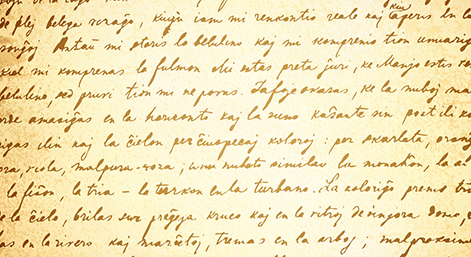 de plej belega vizaĝo, kiujn iam mi renkontis reale kaj kiu aperis en la
sonĝoj Antaŭ mi staris la belulino kaj mi komprenis tion unuarig
kiel mi komprenas la fulmon Mi estas preta ĵuri, ke Manjo estis
belulino, sed pruvi tion mi ne povas. Iafoje okazas, ke la nuboj mal
orde amasiĝas en la horizonto kaj la suno kaŝante sin post ili ko
igas ilin kaj la ĉielon per ĉiuspecaj koloroj: per skarlata, oranĝ
ora, viola, malpura-roza; unu nubeto similas la monaĥon, la
la fiŝon, la tria – la turkon en la turbano. La koloriĝo premis tri
de la ĉielo, brilas sur preĝeja kruco kaj en la vitroj de sinjora domo,
las en la rivero kaj marĉetoj, tremas en la arboj; malproksime